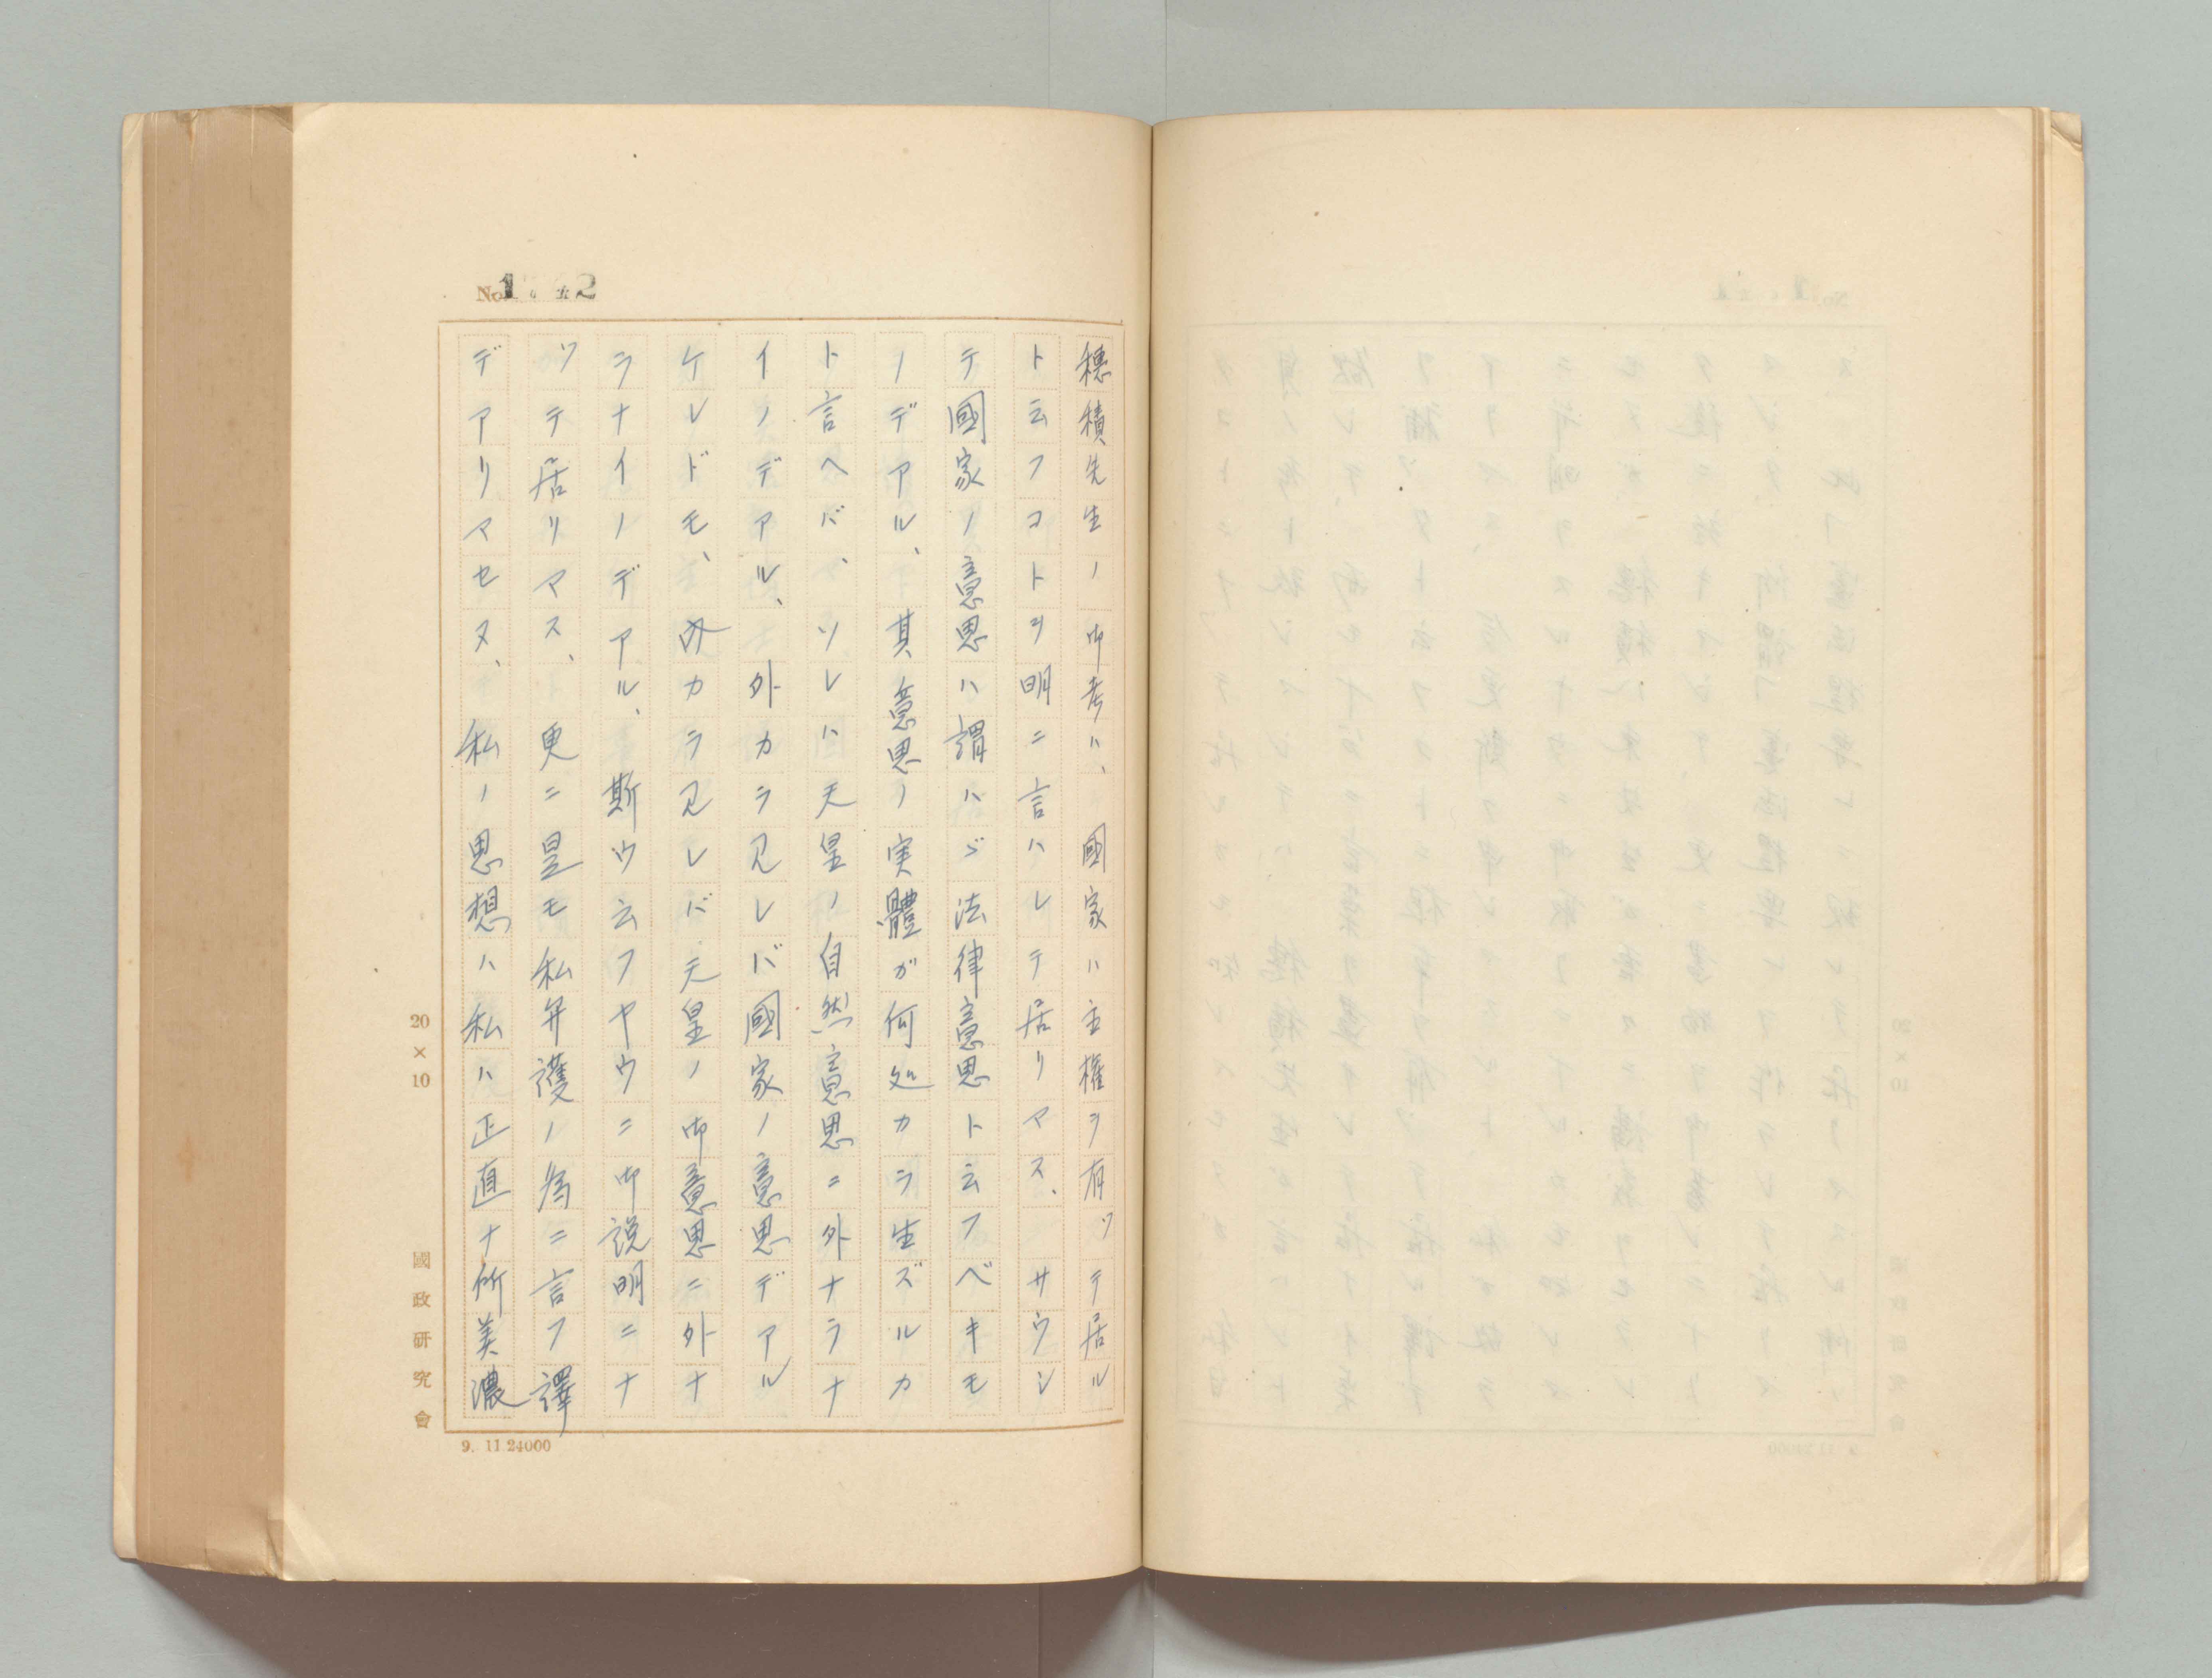 穂積先生ノ御考ハ、國家ハ主権ヲ有ツテ居ル
ト云フコトヲ明ニ言ハレテ居リマス、サウシ
テ國家ノ意思ハ謂ハゞ法律意思ト云フベキモ
ノデアル、其意思ノ実體ガ何処カラ生ズルカ
ト言ヘバ、ソレハ天皇ノ自然意思ニ外ナラナ
イノデアル、外カラ見レバ國家ノ意思デアル
ケレドモ、内カラ見レバ天皇ノ御意思ニ外ナ
ラナイノデアル、斯ウ云フヤウニ御説明ニナ
ツテ居リマス、更ニ是モ私弁護ノ為ニ言フ譯
デアリマセヌ、私ノ思想ハ私ハ正直ナ所美濃
20×10
國政研究會
9. 11 24000